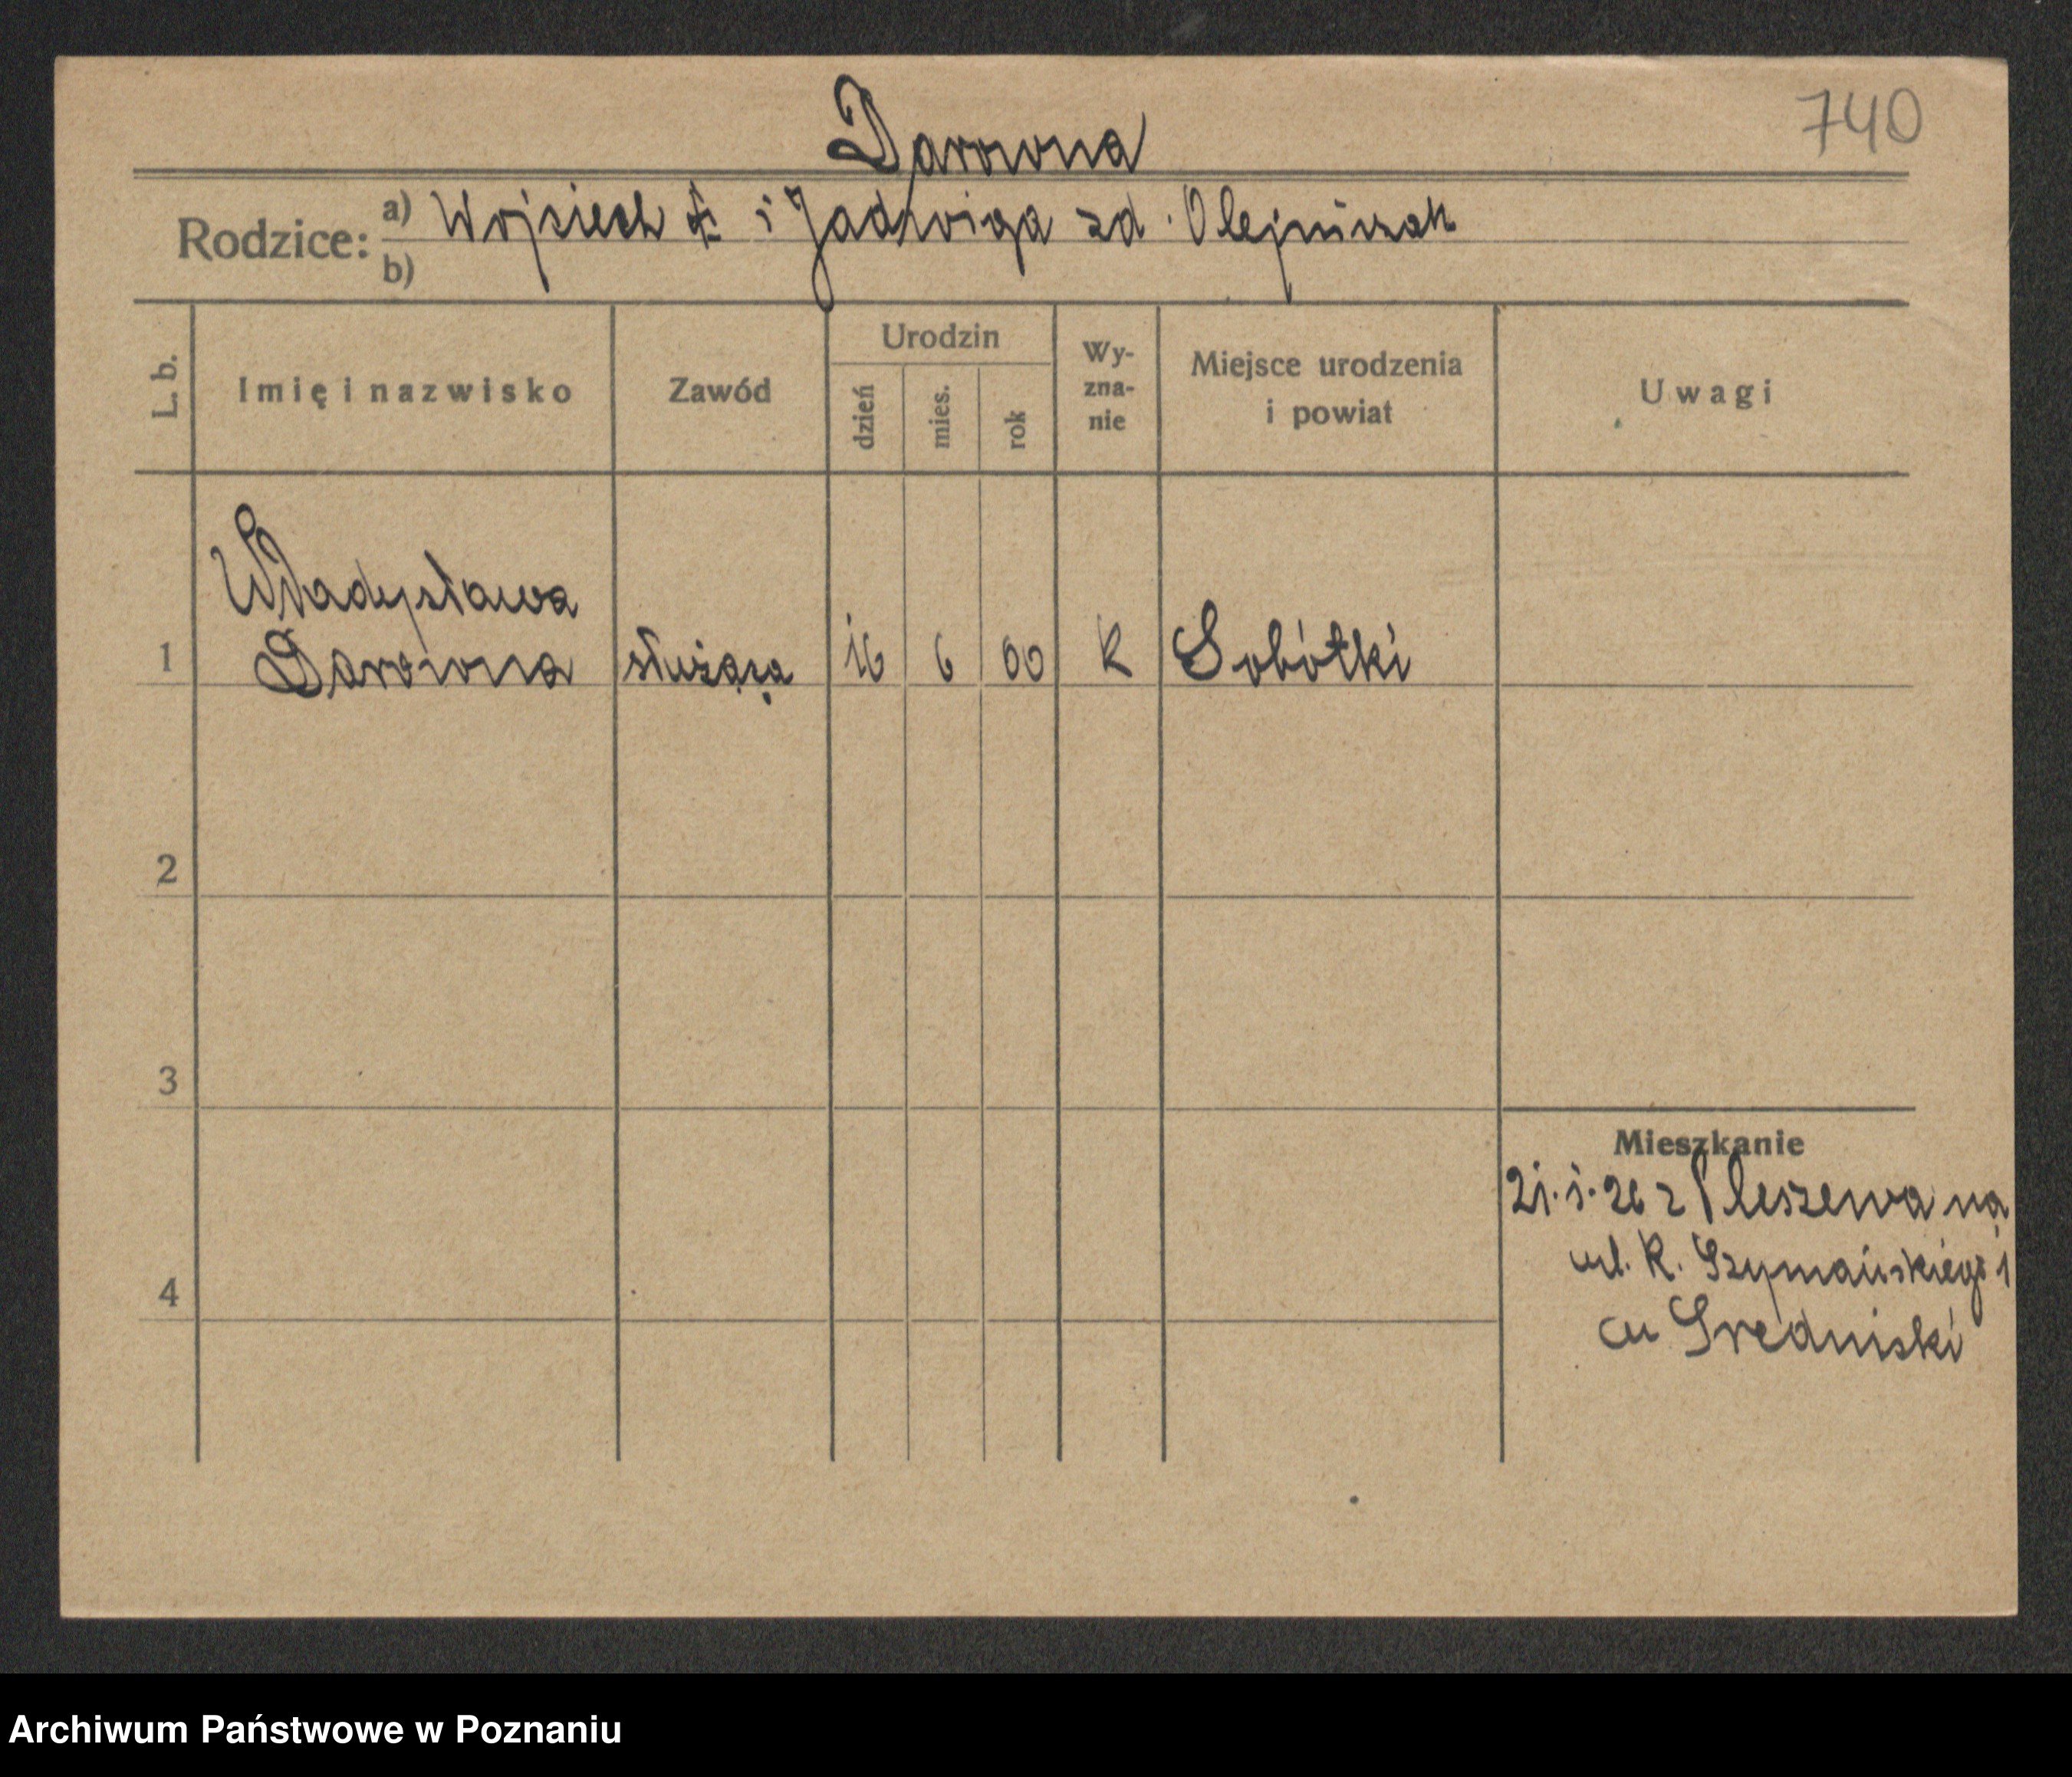 740
Darowna
Rodzice: a) Wojciech i Jadwiga zd. Olejniczak
b)
L. b.
Imię i nazwisko
Zawód
Urodzin
dzień
mies.
rok
Wy-
zna-
nie
Miejsce urodzenia
i powiat
Uwagi
Władysława
1 Darowna służąca 16 6 00 K Sobótki
2
3
4
Mieszkanie
21.1.26 z Pleszewa na
ul. K. Szymańskiego 1
Sredniski
Archiwum Państwowe w Poznaniu